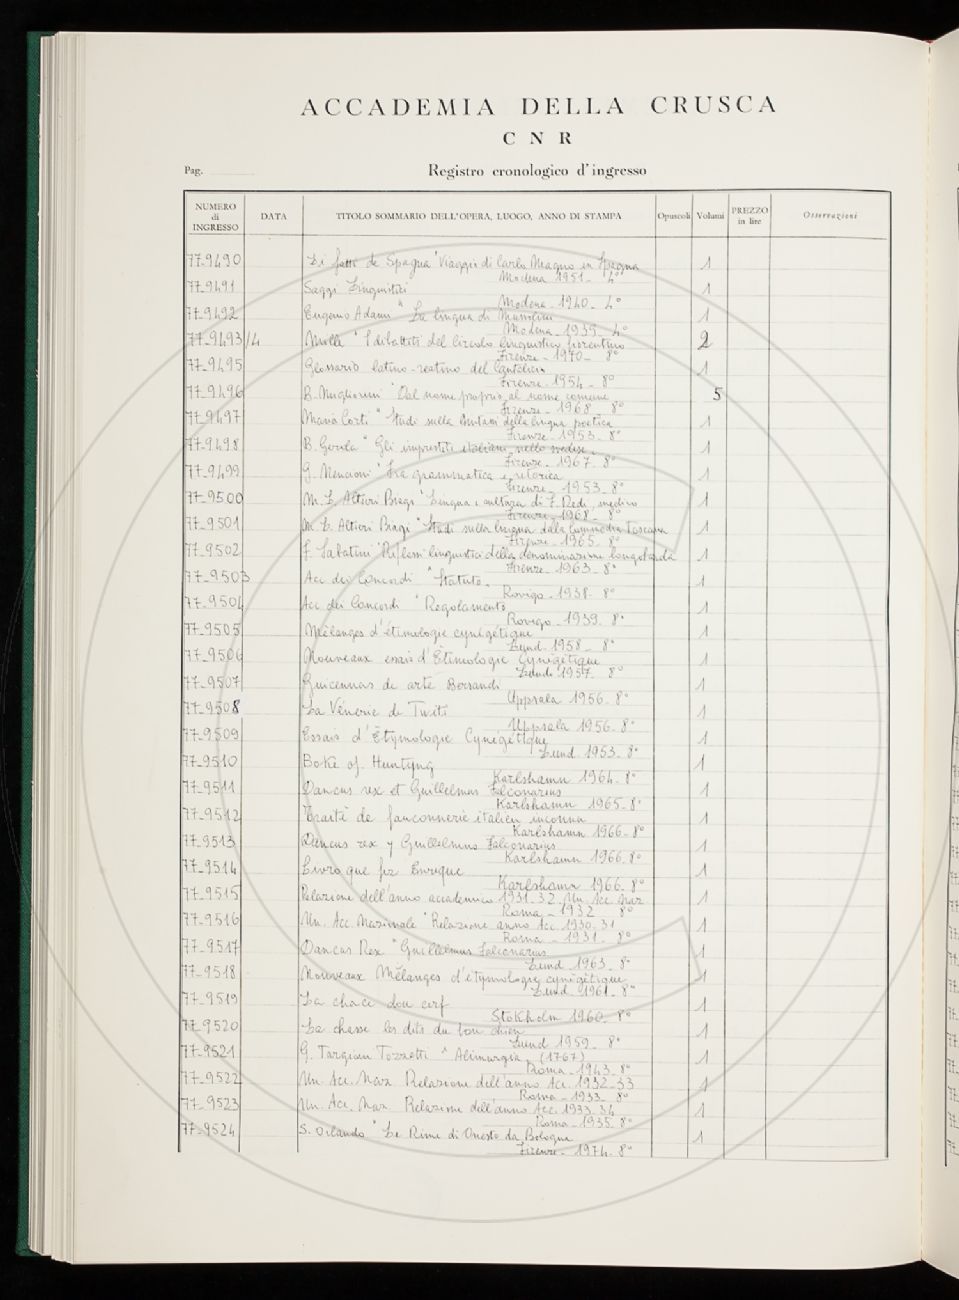 ACCADEMIA DELLA CRUSCA
C N R
Pag.
Registro cronologico d'ingresso
NUMERO di INGRESSO DATA TITOLO SOMMARIO DELL'OPERA, LUOGO, ANNO DI STAMPA Opuscoli Volumi PREZZO in lire Osservazioni
77-9490 Li fatti de Spagna "Viaggio di Carlo Magno in Spagna 1
Modena 1951- 4°
77-9491 Saggi Linguistici 1
Modena - 1940- 4°
77-9492 Eugenio Adami " La lingua di Mussolini 1
Modena - 1939- 4°
77-9493/4 Mille " I dibattiti del Circolo linguistico fiorentino 2
Firenze - 1970- 8°
77-9495 Glossario latino-reatino del Cantalicio 1
Firenze - 1954- 8°
77-9496 B. Migliorini " Dal nome proprio al nome comune 5
Firenze - 1968- 8°
77-9497 Maria Corti " Studi sulla lingua poetica 1
Firenze - 1953- 8°
77-9498 B. " Gli imprestiti italiani nello svedese 1
Firenze - 1967- 8°
77-9499 G. Nencioni " Tra grammatica e retorica 1
Firenze - 1953- 8°
77-9500 M. L. Altieri Biagi " Lingua e cultura di F. Redi, medico 1
Firenze - 1968- 8°
77-9501 M. L. Altieri Biagi " Studi sulla lingua della commedia toscana 1
Firenze - 1965- 8°
77-9502 F. Sabatini "Riflessi linguistici della dominazione longobarda 1
Firenze - 1963- 8°
77-9503 Acc. dei Concordi " Statuto. 1
Rovigo - 1938- 8°
77-9504 Acc. dei Concordi " Regolamento 1
Rovigo - 1939. 8°
77-9505 Mélanges d'étimologie cynégétique 1
Lund - 1958- 8°
77-9506 Nouveaux essais d'Étimologie Cynégétique 1
Lund 1957. 8°
77-9507 Guicennas de arte Bersandi 1
Uppsala 1956. 8°
77-9508 La Vénerie de Twiti 1
Uppsala 1956. 8°
77-9509 Essais d'Étymologie Cynégétique 1
Lund 1953. 8°
77-9510 Boke of Huntyng 1
Karlshamn 1964. 8°
77-9511 Dancus rex et Guillelmus Falconarius 1
Karlshamn 1965- 8°
77-9512 Traité de fauconnerie italien inconnu 1
Karlshamn 1966- 8°
77-9513 Dancus rex y Guillelmus Falconarius 1
Karlshamn 1966. 8°
77-9514 Livro que fez Enrique 1
Karlshamn 1966. 8°
77-9515 Relazione dell'anno accademico 1931-32 Un. Acc. Naz. 1
Roma - 1932 - 8°
77-9516 Un. Acc. Nazionale " Relazione anno Acc. 1930-31 1
Roma - 1931- 8°
77-9517 Dancus Rex "Guillelmus Falconarius 1
Lund 1963. 8°
77-9518 Nouveaux Mélanges d'étymologie cynégétique 1
Lund - 1961- 8°
77-9519 La chace dou cerf 1
Stokholm 1960- 8°
77-9520 La chasse les dits du bon chien 1
Lund 1959- 8°
77-9521 G. Targioni Tozzetti " Alimurgia (1767) 1
Roma - 1943. 8°
77-9522 Un. Acc. Naz. Relazione dell'anno Acc. 1932-33 1
Roma - 1933- 8°
77-9523 Un. Acc. Naz. Relazione dell'anno Acc. 1933-34 1
Roma - 1935- 8°
77-9524 S. Orlando " Le Rime di Onesto da Bologna 1
Firenze - 1974- 8°